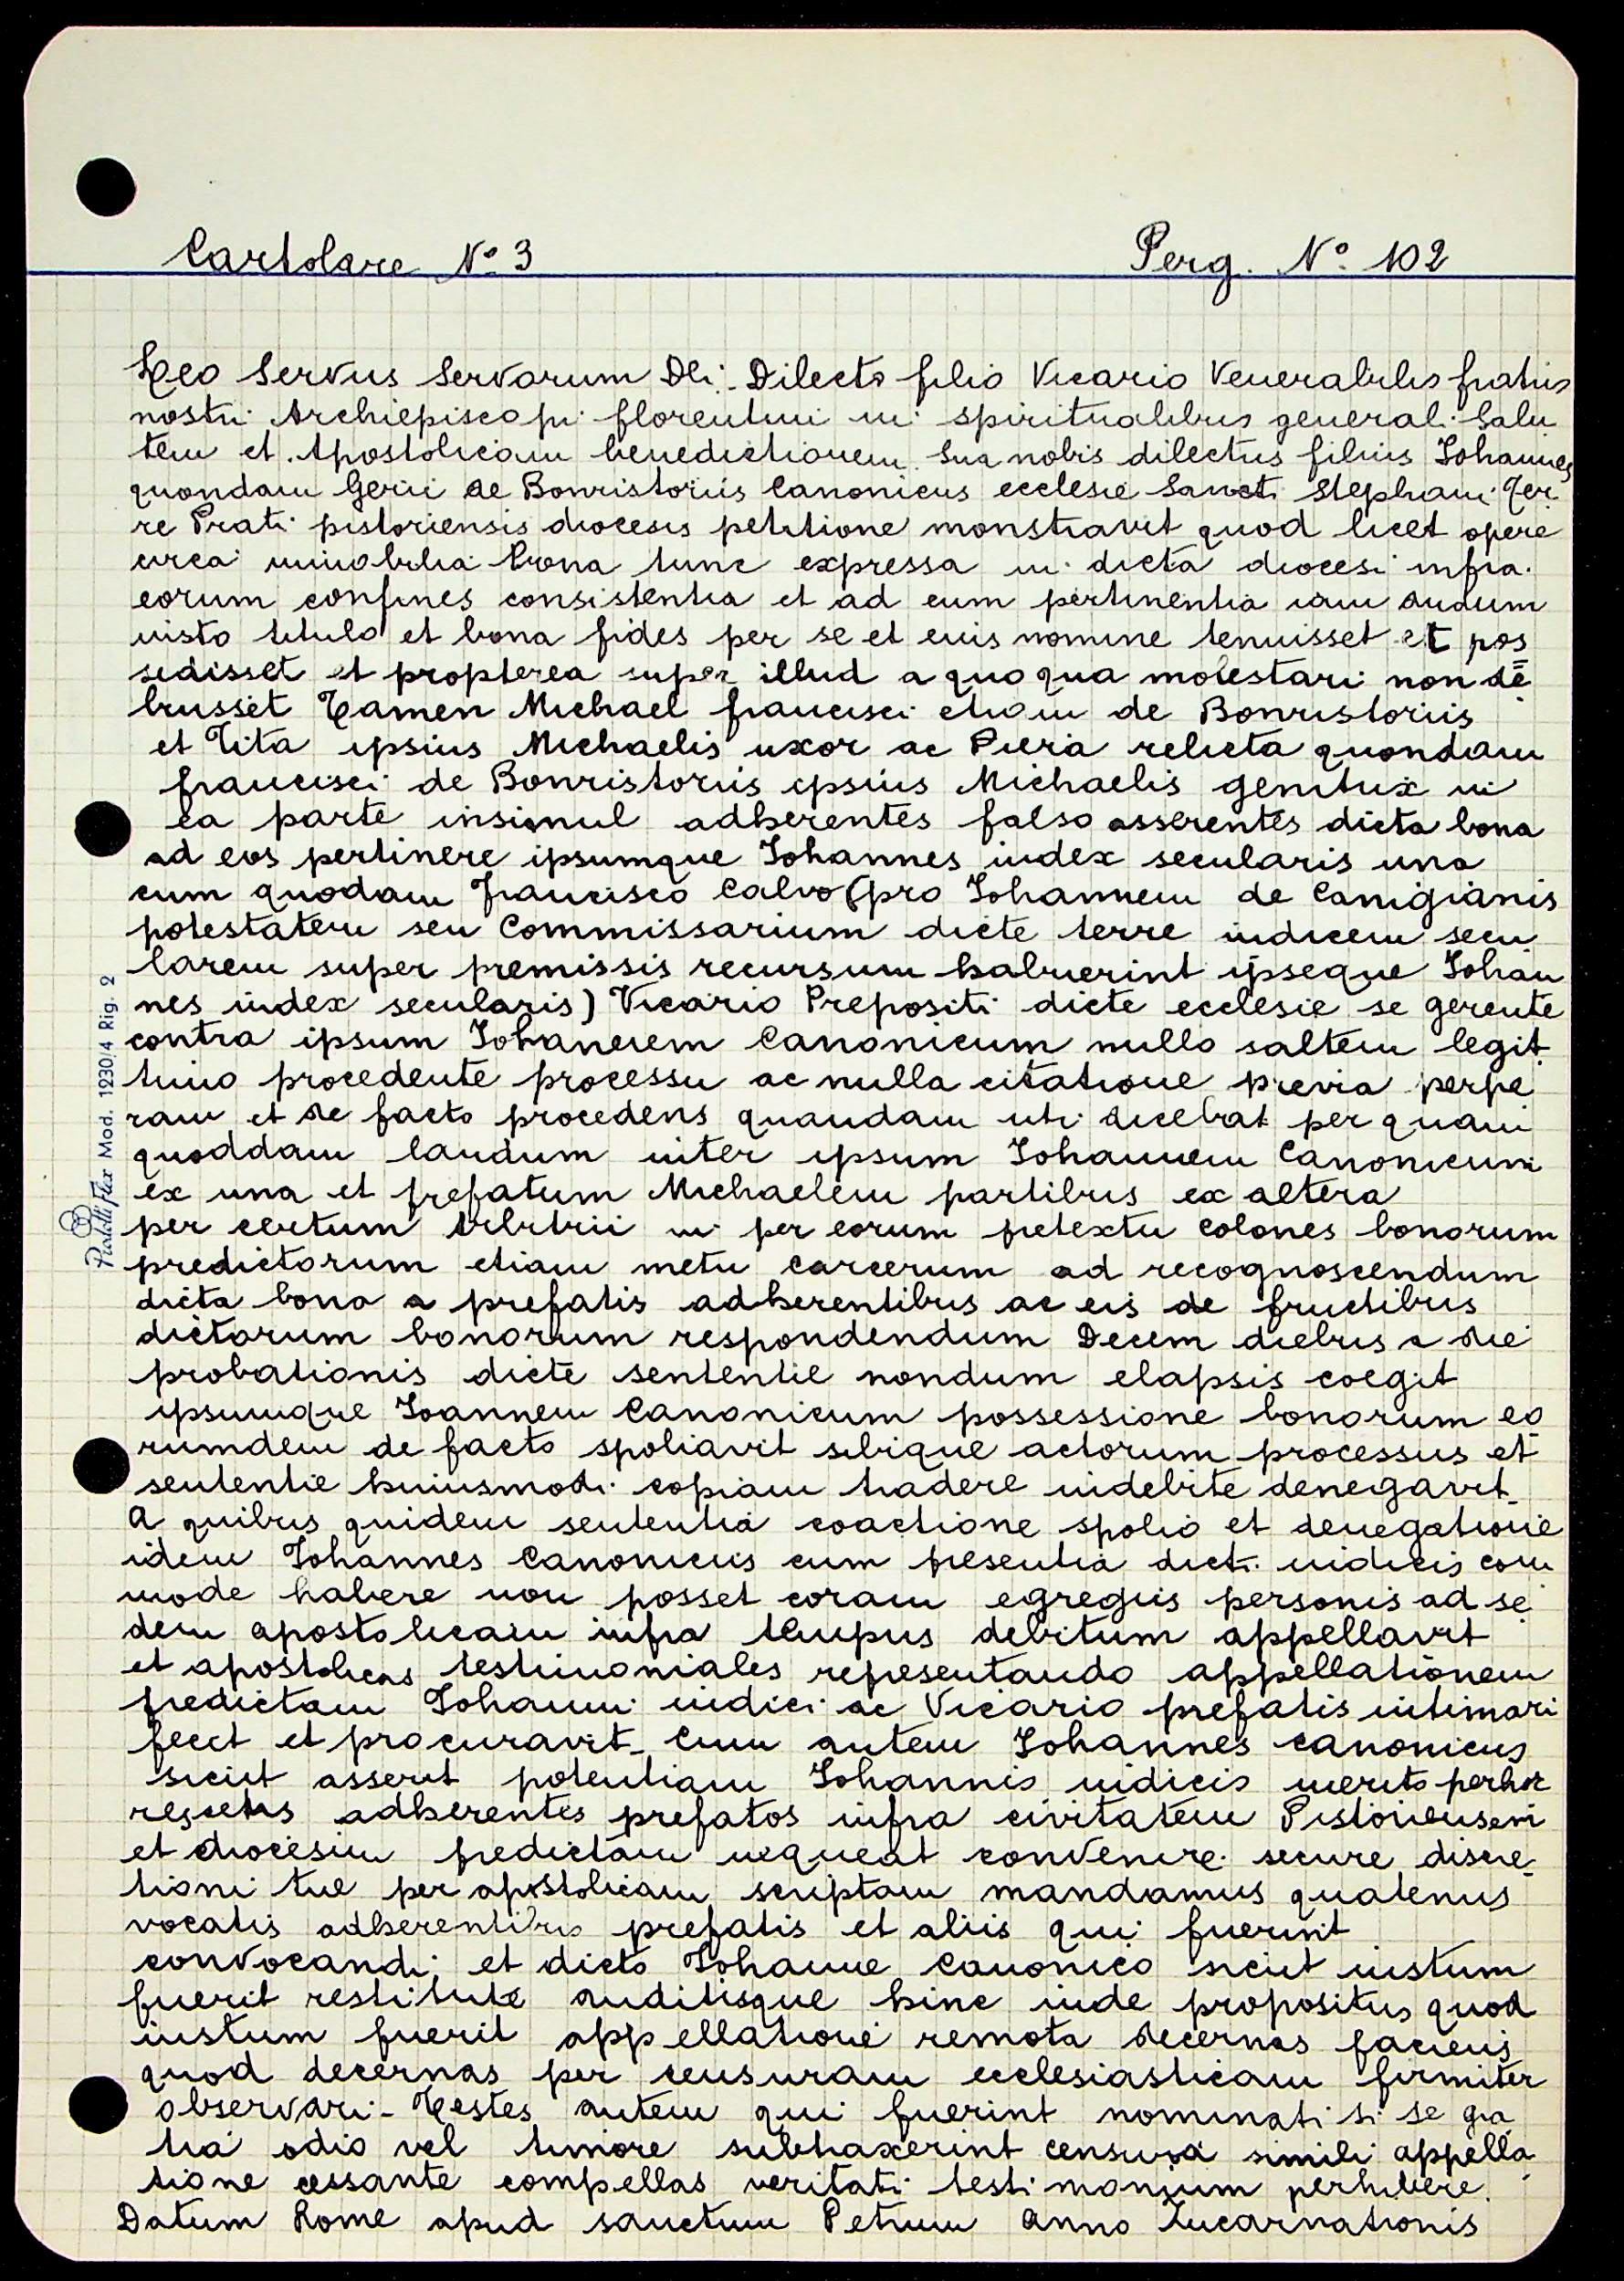 Cartolare N° 3
Perg. N° 102
Leo Servus Servorum Dei. Dilecto filio Vicario Venerabilis fratris
nostri Archiepiscopi florentini in spiritualibus generali Salu
tem et Apostolicam benedictionem. Sua nobis dilectus filius Iohannes
quondam Gerii de Bonristoriis Canonicus ecclesie Sancti Stephani Ter
re Prati pistoriensis diocesis petitione monstravit quod licet opere
circa immobilia bona tunc expressa in dicta diocesi infra
eorum confines consistentia et ad eum pertinentia iam dudum
iusto titulo et bona fides per se et eius nomine tenuisset et pos
sedisset et propterea super illud a quoqua molestari non de
buisset Tamen Michael francisci etiam de Bonristoriis
et Tita ipsius Michaelis uxor ac Piera relicta quondam
francisci de Bonristoriis ipsius Michaelis genitrix in
ea parte insimul adherentes falso asserentes dicta bona
ad eos pertinere ipsumque Iohannes iudex secularis una
cum quodam francisco Calvo (pro Iohannem de Canigianis
potestatem seu Commissarium dicte terre iudicem secu
larem super premissis recursum habuerint ipseque Iohan
nes iudex secularis) Vicario Prepositi dicte ecclesie se gerente
contra ipsum Iohannem Canonicum nullo saltem legit
timo procedente processu ac nulla citatione previa perpe
ram et de facto procedens quandam uti dicebat per quam
quoddam laudum inter ipsum Iohannem Canonicum
ex una et prefatum Michaelem partibus ex altera
per certum Arbitrii in per eorum pretextu colones bonorum
predictorum etiam metu carcerum ad recognoscendum
dicta bona a prefatis adherentibus ac eis de fructibus
dictorum bonorum respondendum Decem diebus a die
probationis dicte sententie nondum elapsis coegit
ipsumque Joannem Canonicum possessione bonorum eo
rumdem de facto spoliavit sibique actorum processus et
sententie huiusmodi copiam tradere indebite denegavit.
A quibus quidem sententia coactione spolio et denegatione
idem Iohannes Canonicus cum presentia dicti iudicis com
mode habere non posset coram egregiis personis ad se
dem apostolicam infra tempus debitum appellavit
et apostolicas testimoniales representando appellationem
predictam Iohanni iudici ac Vicario prefatis intimari
fecit et procuravit. Cum autem Iohannes canonicus
sicut asserit potentiam Iohannis iudicis merito perhor
rescens adherentes prefatos infra civitatem Pistoriensem
et diocesim predictam nequeat convenire secure discre
tioni tue per apostolicam scriptam mandamus quatenus
vocatis adherentibus prefatis et aliis qui fuerint
convocandi et dicto Iohanne Canonico sicut iustum
fuerit restitute auditisque hinc inde propositus quod
iustum fuerit appellatione remota decernas faciens
quod decernas per censuram ecclesiasticam firmiter
observari. Testes autem qui fuerint nominati si se gra
tia odio vel timore subtraxerint censura simili appella
tione cessante compellas veritati testimonium perhibere.
Datum Rome apud sanctum Petrum Anno Incarnationis
PratelliFlex Mod. 1230/4 Rig. 2